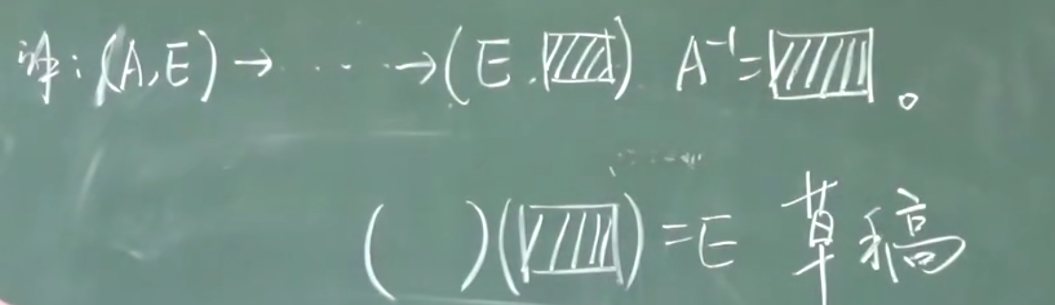 解:(A,E)→ · · · · →(E,▨) A⁻¹=▨。
( )(▨)=E 草稿